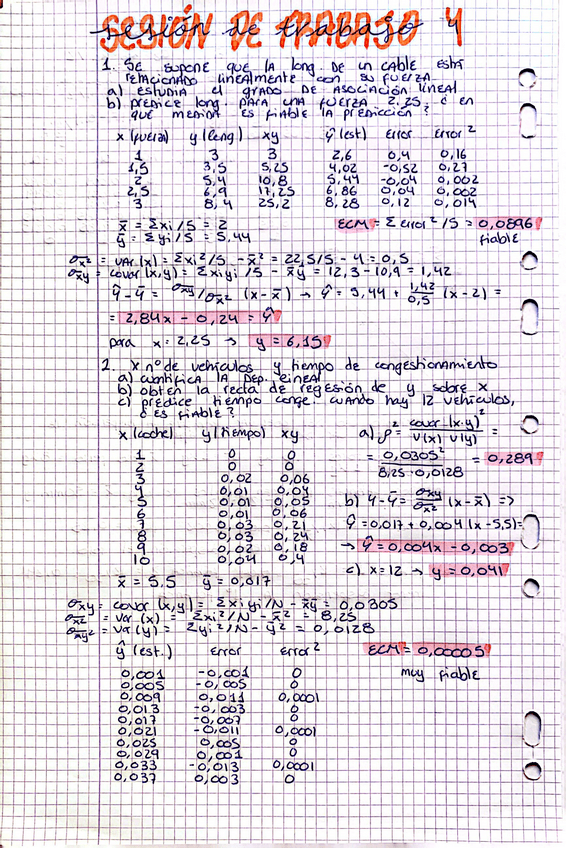 SESIÓN DE TRABAJO 4
1. SE SUPONE QUE LA LONG. DE UN CABLE ESTÁ
RELACIONADO LINEALMENTE CON SU FUERZA.
a) ESTUDIA EL GRADO DE ASOCIACIÓN LINEAL
b) PREDICE LONG. PARA UNA FUERZA 2,25, ¿ EN
QUÉ MEDIDA ES FIABLE LA PREDICCIÓN?
x (fuerza) y (long) xy ŷ (est) Error Error²
1 3 3 2,6 0,4 0,16
1,5 3,5 5,25 4,02 -0,52 0,27
2 5,4 10,8 5,44 -0,04 0,002
2,5 6,9 17,25 6,86 0,04 0,002
3 8,4 25,2 8,28 0,12 0,014
x̄ = Σxi/5 = 2
ȳ = Σyi/5 = 5,44
ECM = Σ error²/5 = 0,0896
fiable
σx² = var (x) = Σxi²/5 - x̄² = 22,5/5 - 4 = 0,5
σxy = covar (x,y) = Σxiyi/5 - x̄ȳ = 12,3 - 10,9 = 1,42
ŷ - ȳ = σxy/σx² (x-x̄) → ŷ = 5,44 + 1,42/0,5 (x-2) =
= 2,84x - 0,24 = ŷ
para x = 2,25 → y = 6,15
2. x nº de vehículos y tiempo de congestionamiento
a) cuantifica LA DEP. LINEAL
b) obten la recta de regesión de y sobre x
c) predice tiempo conge. cuando hay 12 vehículos,
¿ es fiable?
x (coche) y (tiempo) xy
1 0 0
2 0 0
3 0,02 0,06
4 0,01 0,04
5 0,01 0,05
6 0,01 0,06
7 0,03 0,21
8 0,03 0,24
9 0,02 0,18
10 0,04 0,4
a) ρ² = covar (x·y)² / v(x) v(y) =
= 0,0305² / 8,25·0,0128 = 0,289
b) y-ȳ = σxy/σx² (x-x̄) =>
ŷ = 0,017 + 0,004 (x-5,5) =
→ ŷ = 0,004x - 0,003
c) x=12 → y = 0,041
x̄ = 5,5 ȳ = 0,017
σxy = covar (x,y) = Σxiyi/N - x̄ȳ = 0,0305
σx² = var (x) = Σxi²/N - x̄² = 8,25
σxy² = var (y) = Σyi²/N - ȳ² = 0,0128
ŷ (est.) Error Error²
0,001 -0,001 0
0,005 -0,005 0
0,009 0,011 0,0001
0,013 -0,003 0
0,017 -0,007 0
0,021 -0,011 0,0001
0,025 0,005 0
0,029 0,001 0
0,033 -0,013 0,0001
0,037 0,003 0
ECM = 0,00005
muy fiable